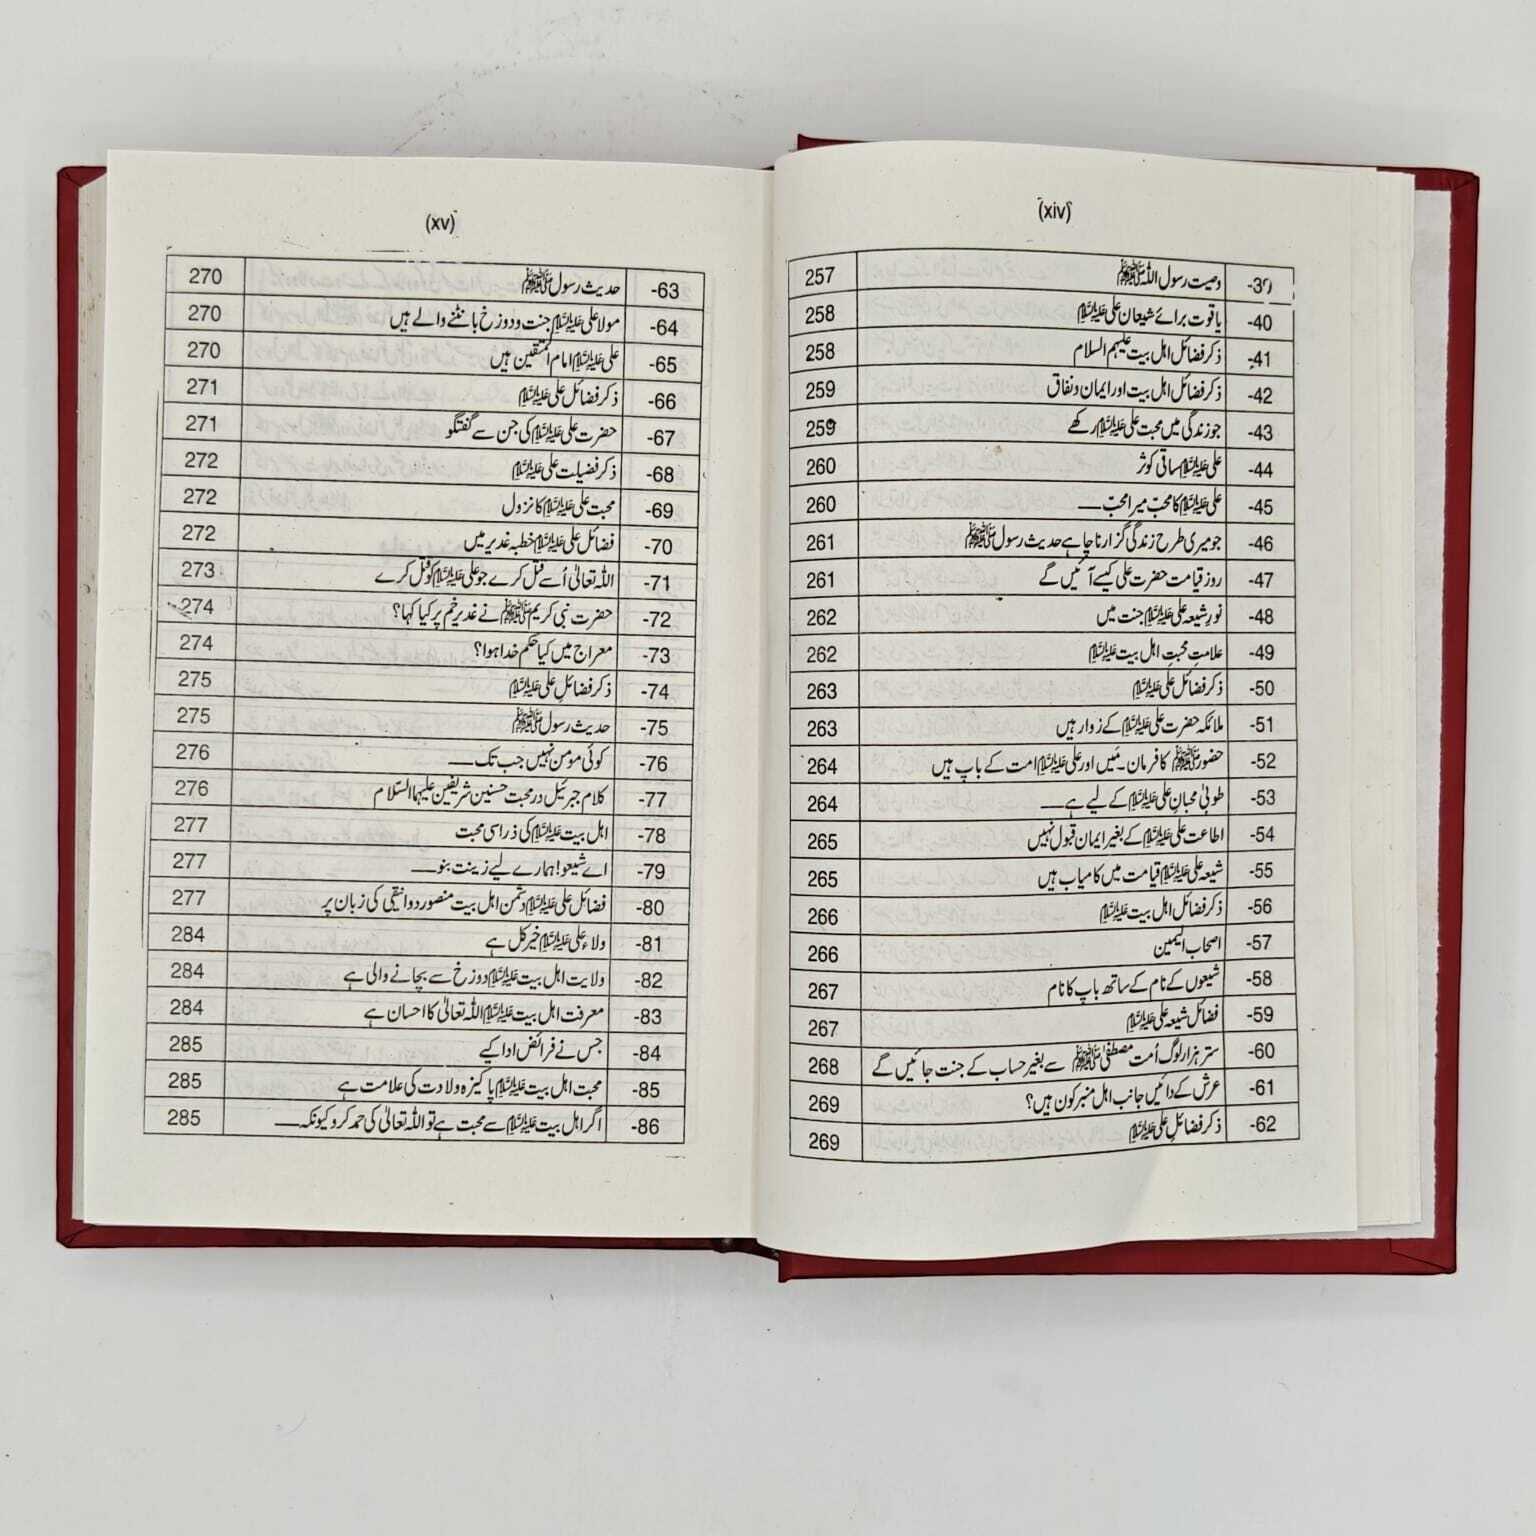 (xiv)
39- وصیت رسول اللہ ﷺ 257
40- یاقوت برائے شیعان علی علیہ السلام 258
41- ذکر فضائل اہل بیت علیہم السلام 258
42- ذکر فضائل اہل بیت اور ایمان و نفاق 259
43- جو زندگی میں محبت علی علیہ السلام رکھے 259
44- علی علیہ السلام ساقی کوثر 260
45- علی علیہ السلام کا محبّ میرا محبّ ۔۔۔۔ 260
46- جو میری طرح زندگی گزارنا چاہے حدیث رسول ﷺ 261
47- روز قیامت حضرت علی کیسے آئیں گے 261
48- نورِ شیعہ علی علیہ السلام جنت میں 262
49- علامتِ محبتِ اہل بیت علیہ السلام 262
50- ذکر فضائل علی علیہ السلام 263
51- ملائکہ حضرت علی علیہ السلام کے زوار ہیں 263
52- حضور ﷺ کا فرمان۔ مَیں اور علی علیہ السلام امت کے باپ ہیں 264
53- طوبیٰ محبانِ علی علیہ السلام کے لیے ہے ۔۔۔۔ 264
54- اطاعت علی علیہ السلام کے بغیر ایمان قبول نہیں 265
55- شیعہ علی علیہ السلام قیامت میں کامیاب ہیں 265
56- ذکر فضائل اہل بیت علیہ السلام 266
57- اصحاب الیمین 266
58- شیعوں کے نام کے ساتھ باپ کا نام 267
59- فضائل شیعہ علی علیہ السلام 267
60- ستر ہزار لوگ اُمت مصطفیٰ ﷺ سے بغیر حساب کے جنت جائیں گے 268
61- عرش کے دائیں جانب اہل منبر کون ہیں؟ 269
62- ذکر فضائلِ علی علیہ السلام 269
(xv)
63- حدیث رسول ﷺ 270
64- مولا علی علیہ السلام جنت و دوزخ بانٹنے والے ہیں 270
65- علی علیہ السلام امام المتقین ہیں 270
66- ذکر فضائل علی علیہ السلام 271
67- حضرت علی علیہ السلام کی جن سے گفتگو 271
68- ذکر فضیلت علی علیہ السلام 272
69- محبت علی علیہ السلام کا نزول 272
70- فضائل علی علیہ السلام خطبہ غدیر میں 272
71- اللہ تعالیٰ اُسے قتل کرے جو علی علیہ السلام کو قتل کرے 273
72- حضرت نبی کریم ﷺ نے غدیر خم پر کیا کہا؟ 274
73- معراج میں کیا حکم خدا ہوا؟ 274
74- ذکر فضائلِ علی علیہ السلام 275
75- حدیث رسول ﷺ 275
76- کوئی مومن نہیں جب تک ۔۔۔۔ 276
77- کلام جبرئیل در محبت حسنین شریفین علیہما السّلام 276
78- اہل بیت علیہ السلام کی ذرا سی محبت 277
79- اے شیعو! ہمارے لیے زینت بنو ۔۔۔۔ 277
80- فضائل علی علیہ السلام دشمن اہل بیت منصور دوانیقی کی زبان پر 277
81- ولاء علی علیہ السلام خیر کل ہے 284
82- ولایت اہل بیت علیہ السلام دوزخ سے بچانے والی ہے 284
83- معرفت اہل بیت علیہ السلام اللہ تعالیٰ کا احسان ہے 284
84- جس نے فرائض ادا کیے 285
85- محبت اہل بیت علیہ السلام پاکیزہ ولادت کی علامت ہے 285
86- اگر اہل بیت علیہ السلام سے محبت ہے تو اللہ تعالیٰ کی حمد کرو کیونکہ ۔۔۔۔ 285